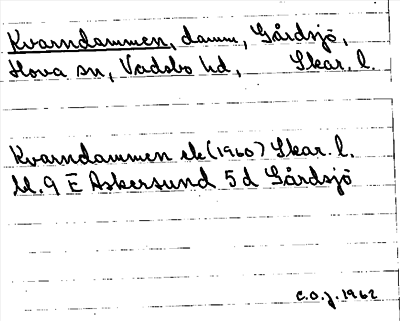 Kvarndammen, damm, Gårdsjö,
Hova sn, Vadsbo hd, Skar. l.
Kvarndammen ek (1960) Skar. l.
bl. 9 E Askersund 5 d Gårdsjö
C.O.J. 1962